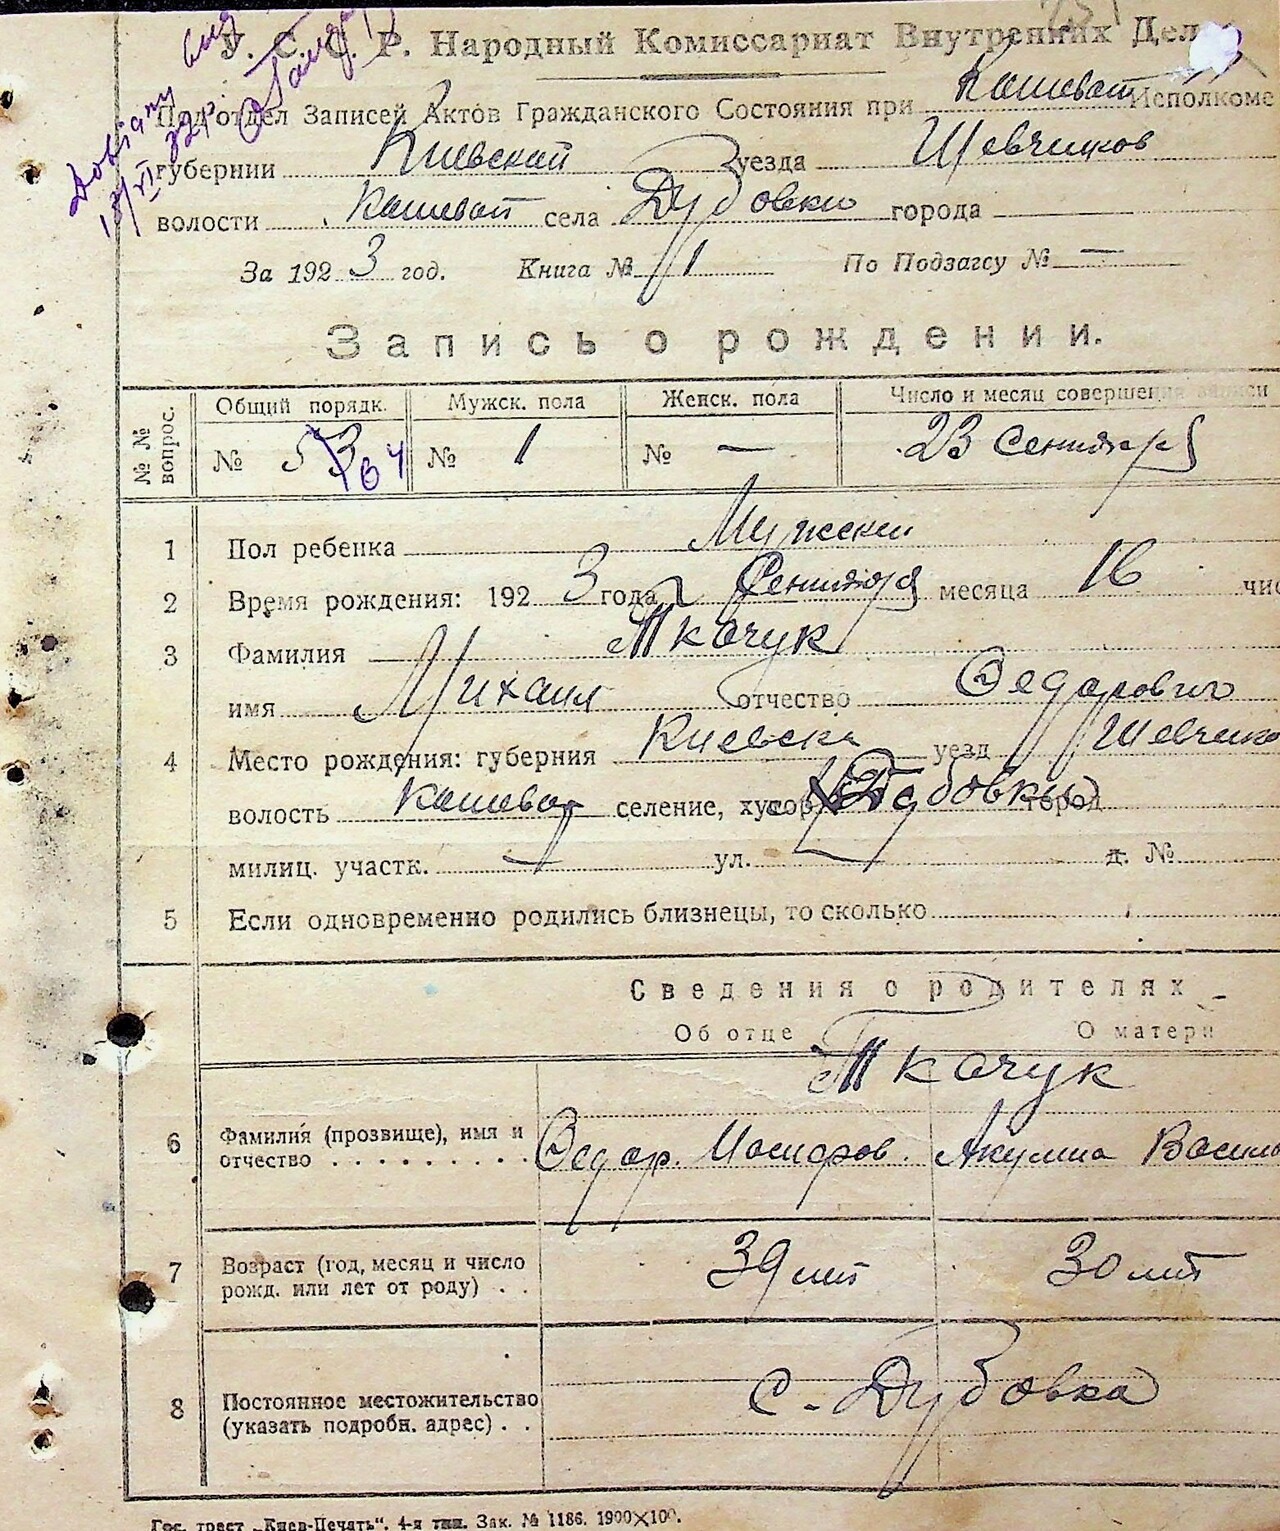 У. С. С. Р. Народный Комиссариат Внутренних Дел
Подотдел Записей Актов Гражданского Состояния при Кашеват Исполкоме
губернии Киевской уезда Шевченков
волости Кашеват села Дубовки города
За 1923 год. Книга № 1 По Подзагсу № —
Запись о рождении.
№ № вопрос. Общий порядк. Мужск. пола Женск. пола Число и месяц совершения записи
№ 53 64 № 1 № — 23 Сентября
1 Пол ребенка Мужски
2 Время рождения: 1923 года Сентября месяца 16 чис
3 Фамилия Ткачук
имя Михаил отчество Федорович
4 Место рождения: губерния Киевска уезд Шевченко
волость Кашеват селение, хутор Дубовки город
милиц. участк. ул. д. №
5 Если одновременно родились близнецы, то сколько
Сведения о родителях
Об отце О матери
Ткачук
6 Фамилия (прозвище), имя и
отчество . . . . . . . . . Федор. Акулина Василь
7 Возраст (год, месяц и число
рожд. или лет от роду) . . 39 лет 30 лет
8 Постоянное местожительство
(указать подробн. адрес) . . С. Дубовка
Гос. трест „Киев-Печать“. 4-я тип. Зак. № 1186. 1900×100.